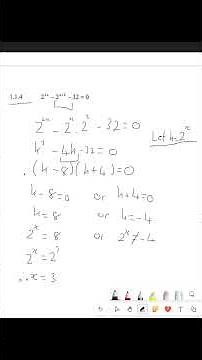 1.1.4 2²ˣ - 2ˣ⁺² - 32 = 0
2²ˣ - 2ˣ . 2² - 32 = 0
Let k = 2ˣ
k² - 4k - 32 = 0
∴ (k - 8)(k + 4) = 0
k - 8 = 0 or k + 4 = 0
k = 8 or k = -4
2ˣ = 8 or 2ˣ ≠ -4
2ˣ = 2³
∴ x = 3